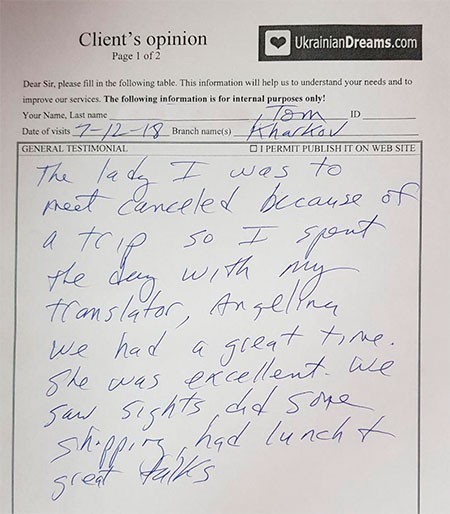 Client's opinion
Page 1 of 2
UkrainianDreams.com
Dear Sir, please fill in the following table. This information will help us to understand your needs and to
improve our services. The following information is for internal purposes only!
Your Name, Last name Tom ID
Date of visits 7-12-18 Branch name(s) Kharkov
GENERAL TESTIMONIAL ☐ I PERMIT PUBLISH IT ON WEB SITE
The lady I was to
meet canceled because of
a trip so I spent
the day with my
translator, Angelina
We had a great time.
She was excellent. We
saw sights, did some
shopping, had lunch &
great talks